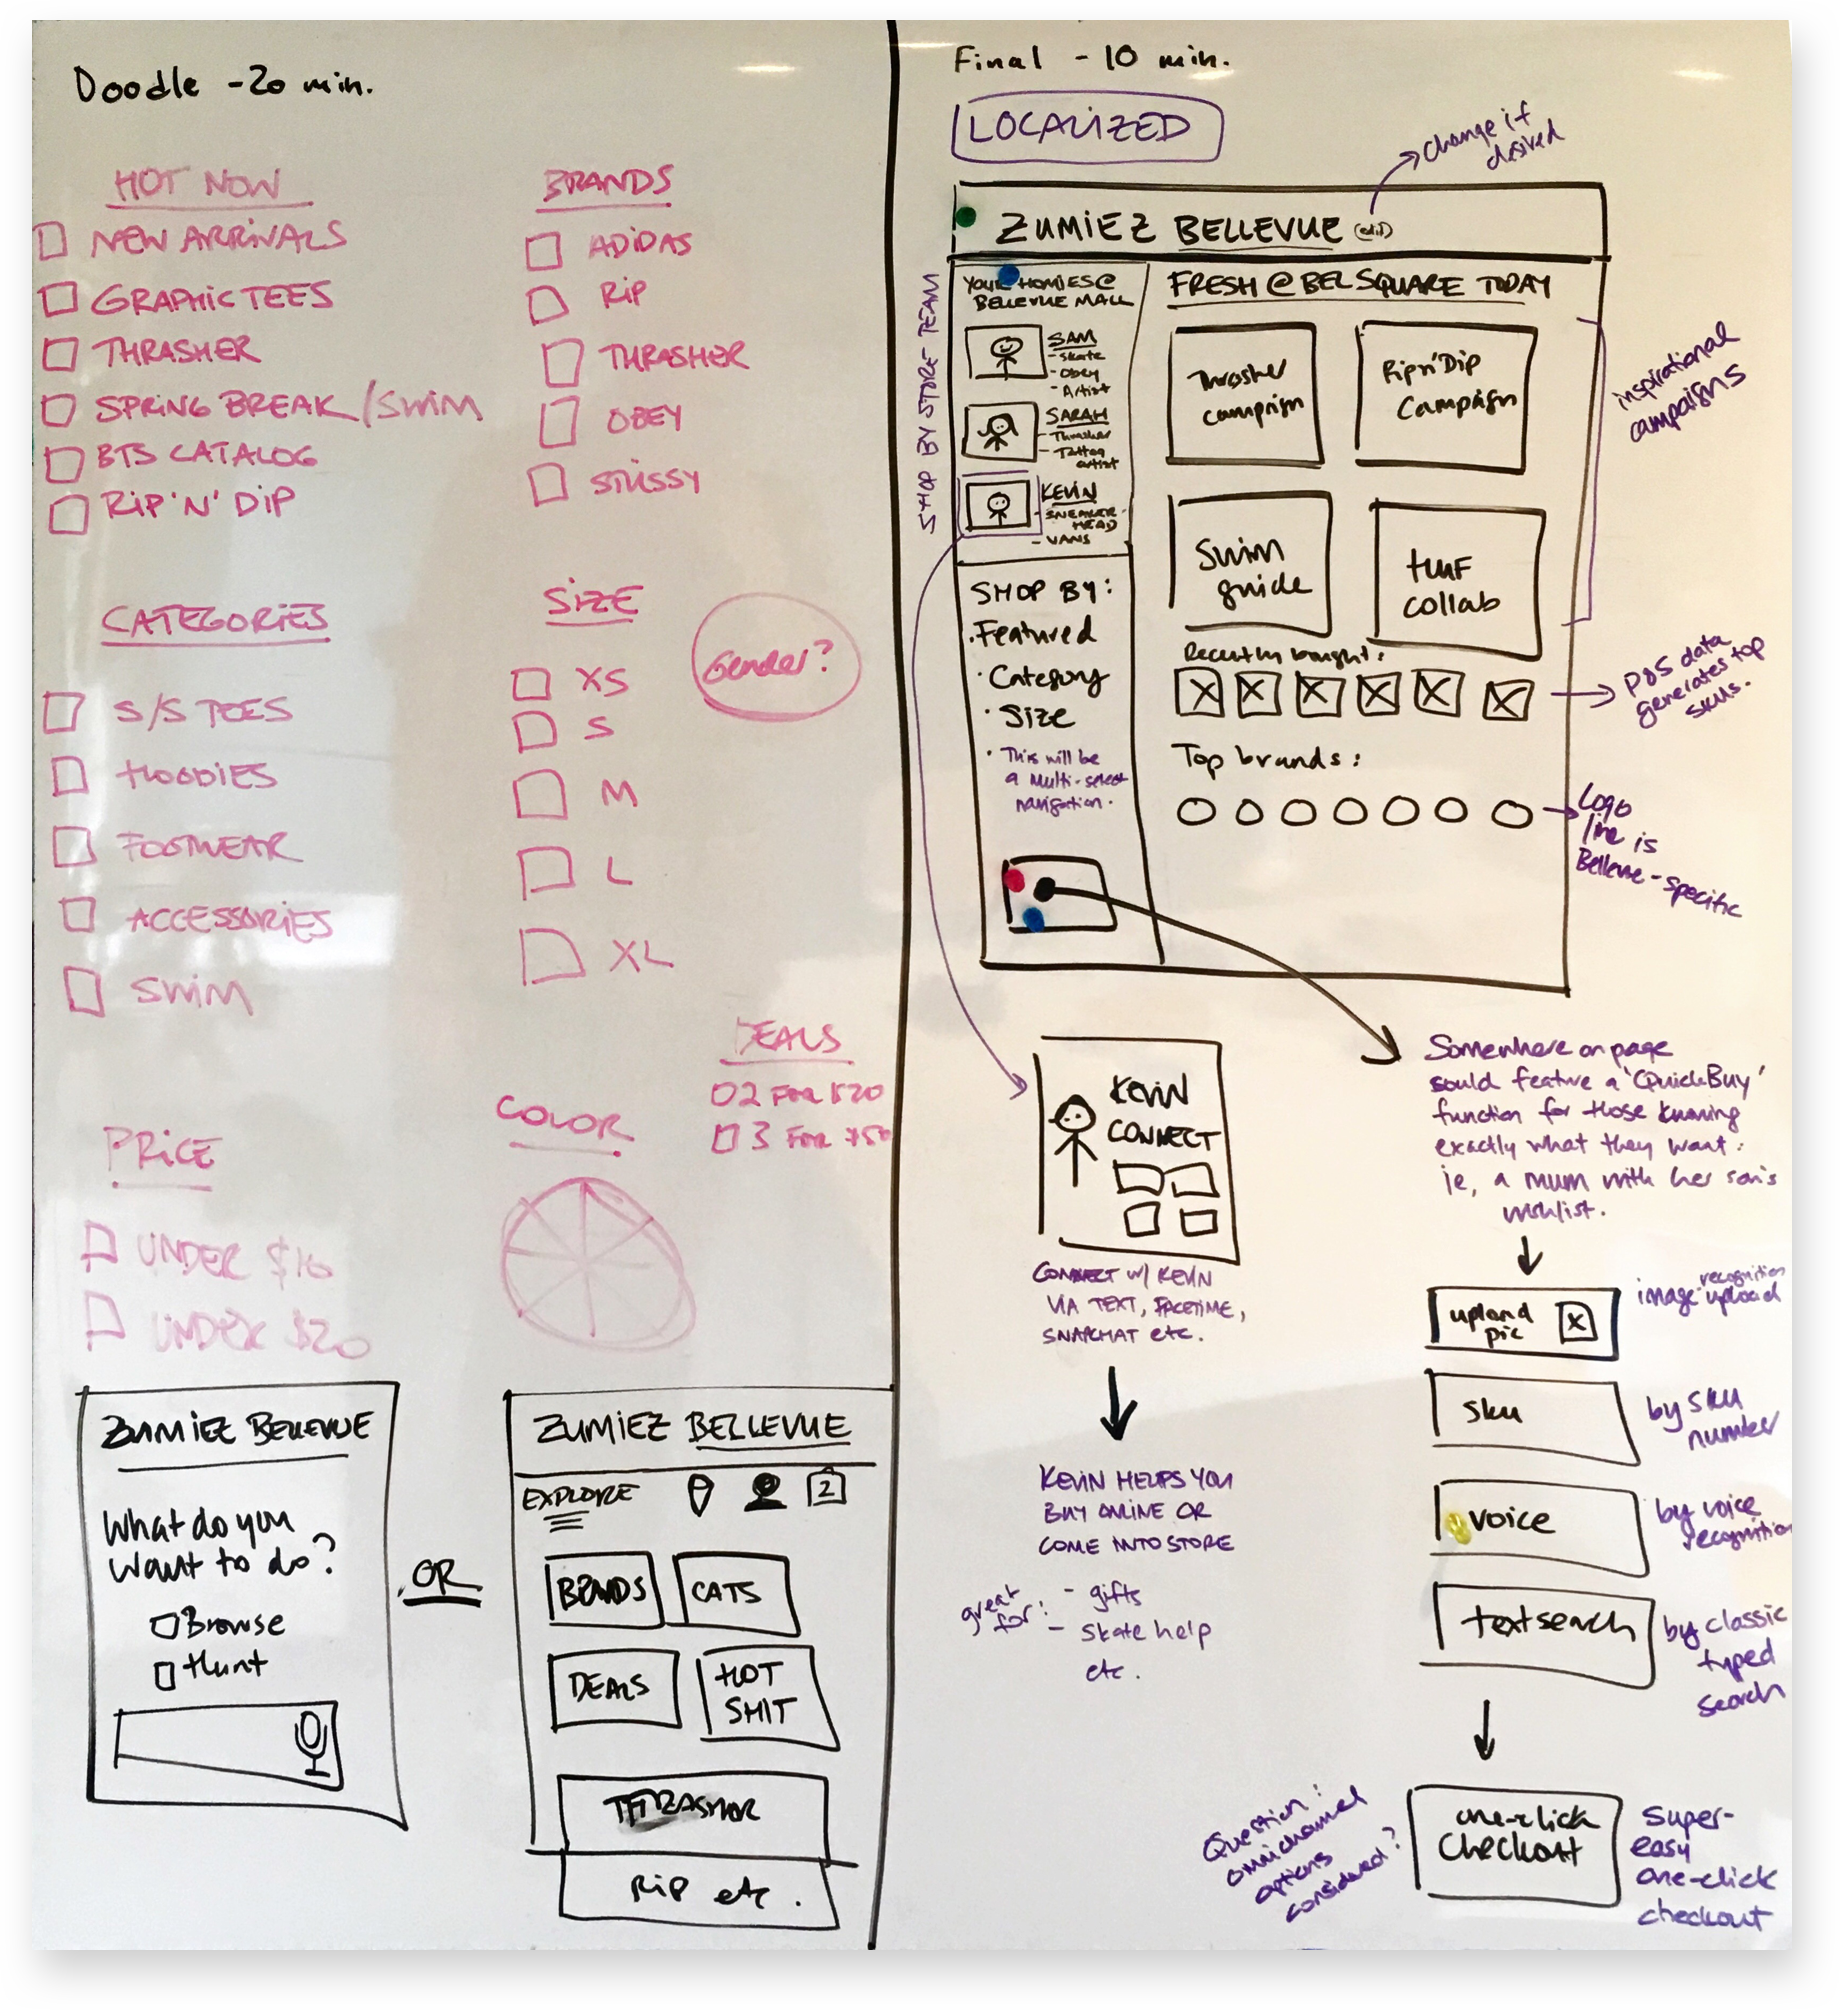 Doodle - 20 min.
HOT NOW
NEW ARRIVALS
GRAPHIC TEES
THRASHER
SPRING BREAK/SWIM
BTS CATALOG
RIP 'N' DIP
BRANDS
ADIDAS
RIP
THRASHER
OBEY
STUSSY
CATEGORIES
S/S TEES
HOODIES
FOOTWEAR
ACCESSORIES
SWIM
SIZE
XS
S
M
L
XL
Gender?
DEALS
2 FOR $20
3 FOR $50
PRICE
UNDER $10
UNDER $20
COLOR
ZUMIEZ BELLEVUE
What do you
want to do?
Browse
Hunt
OR
ZUMIEZ BELLEVUE
EXPLORE
2
BRANDS
CATS
DEALS
HOT
SHIT
THRASHER
RIP etc.
Final - 10 min.
LOCALIZED
change if
desired
ZUMIEZ BELLEVUE (edit)
SHOP BY STORE TEAM
YOUR HOMIES @
BELLEVUE MALL
SAM
- Skate
- Obey
- Artist
SARAH
- Thrasher
- Tattoo
artist
KEVIN
- SNEAKER-
HEAD
- VANS
SHOP BY:
· Featured
· Category
· Size
· This will be
a multi-select
navigation.
FRESH @ BEL SQUARE TODAY
Thrasher
campaign
Rip n' Dip
Campaign
Swim
guide
HUF
collab
inspirational
campaigns
Recently bought:
POS data
generates top
skus.
Top brands:
Logo
line is
Bellevue-specific
KEVIN
CONNECT
CONNECT w/ KEVIN
VIA TEXT, FACETIME,
SNAPCHAT etc.
KEVIN HELPS YOU
BUY ONLINE OR
COME INTO STORE
great
for:
- gifts
- Skate help
etc.
Somewhere on page
sould feature a 'QuickBuy'
function for those knowing
exactly what they want:
ie, a mum with her son's
wishlist.
upload
pic
X
image-recognition
upload
sku
by sku
number
voice
by voice
recognition
text search
by classic
typed
search
one-click
checkout
super-
easy
one-click
checkout
Question:
omnichannel
options
considered?